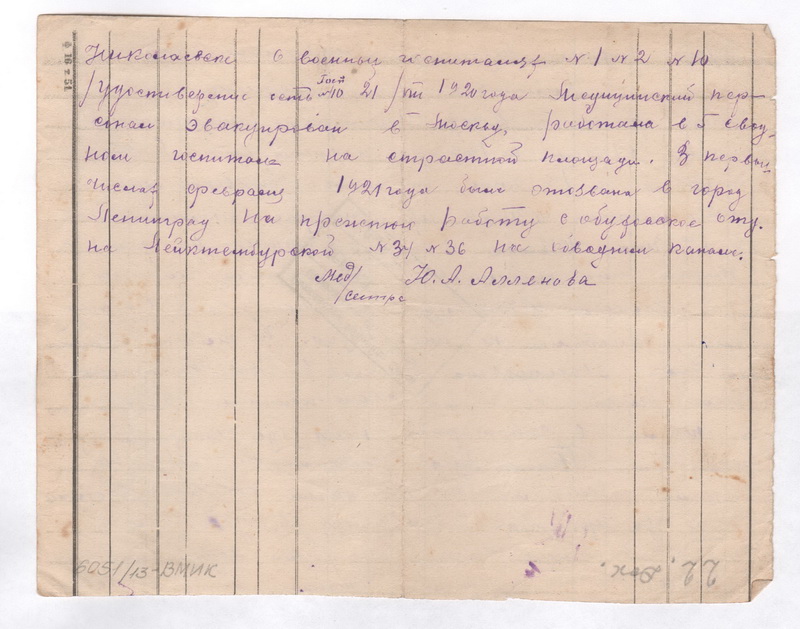 о военный госпиталях №1 №2 №10
/удостоверение есть Гост №10 21/VIII 1920 года Медицинский пер-
сонал эвакуирован в Москву, работала в 5 свод-
ном госпитале на страстной площади. В первых
числах февраля 1921 года была отозвана в город
Ленинград. На прежнюю работу с обуховское
на №34 №36 на обводном канале.
Мед/сестра Ю. А. Алленова
6051/13-ВМИК
22. Док.
ф 16 т 51